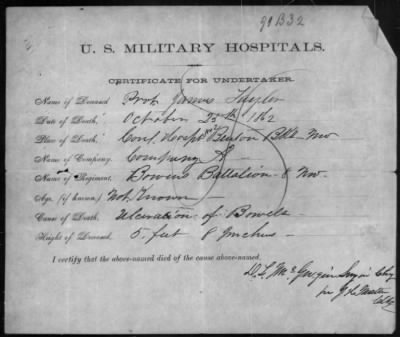 91B32
U. S. MILITARY HOSPITALS.
CERTIFICATE FOR UNDERTAKER.
Name of Deceased James Taylor
Date of Death, October 25th 1862
Place of Death, Benton Mo
Name of Company, Company
Name of Regiment, Bowens Battalion Mo
Age, (if known,) Not Known
Cause of Death, Ulceration of Bowels
Height of Deceased, 5 feet 8 Inches
I certify that the above-named died of the cause above-named.